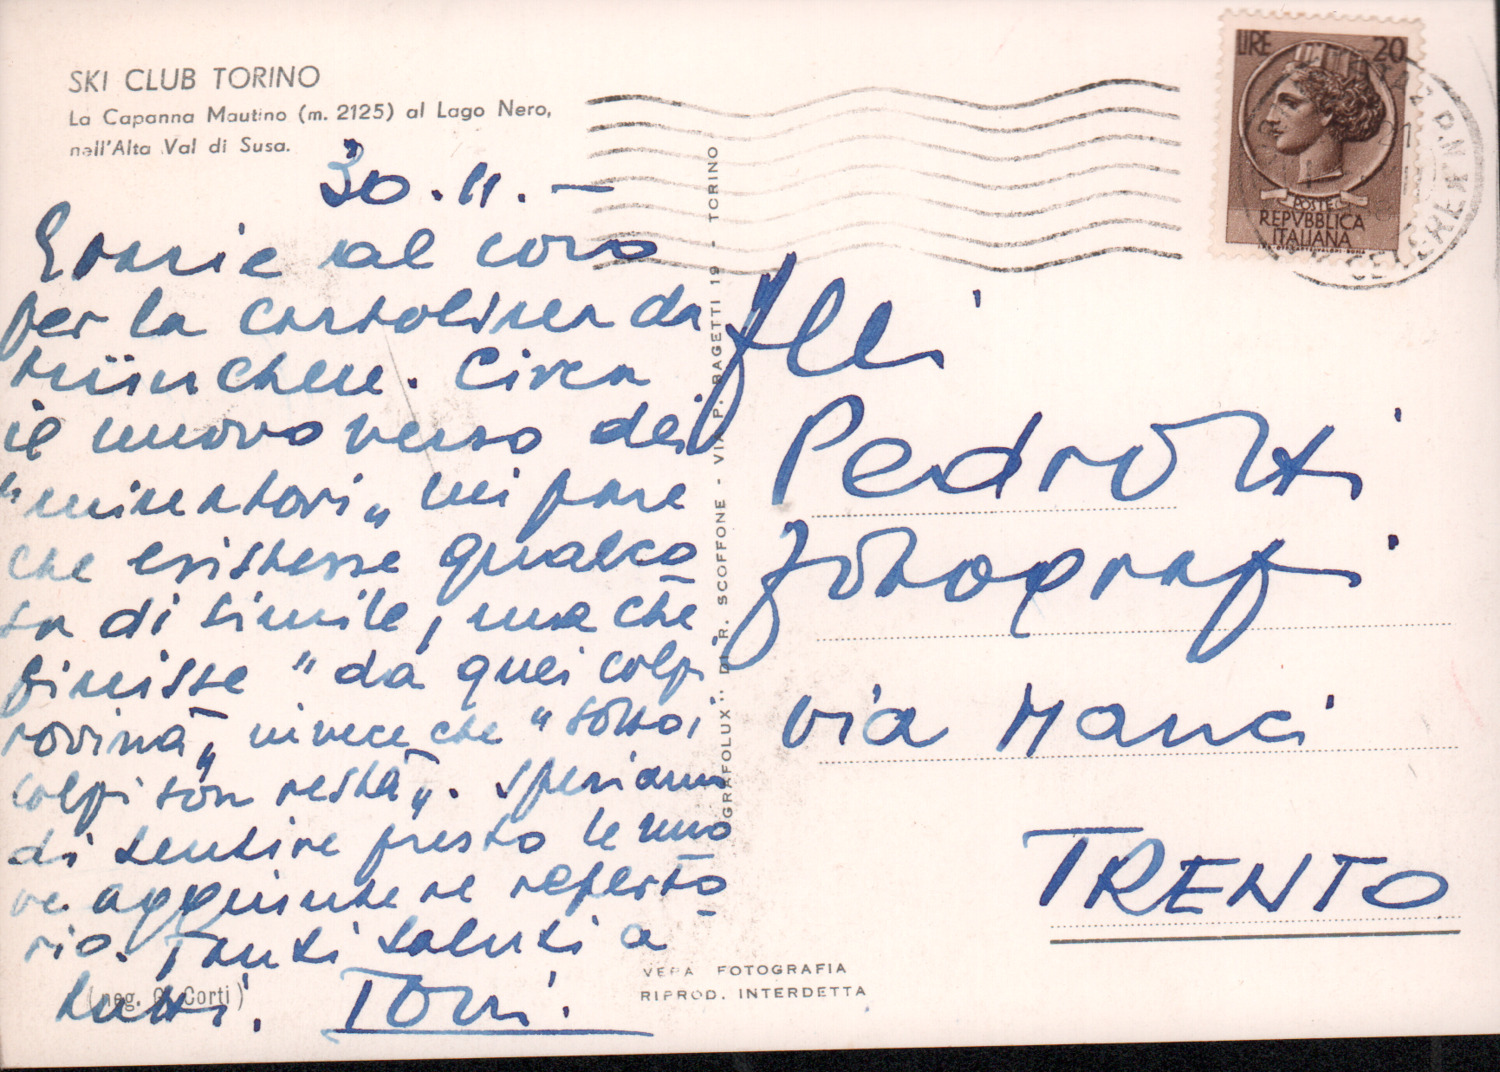 SKI CLUB TORINO
La Capanna Mautino (m. 2125) al Lago Nero,
nell'Alta Val di Susa.
30.11.—
Grazie al coro
per la cartolina da
München. Circa
il nuovo verso dei
"minatori„ mi pare
che esistesse qualco
sa di simile, ma che
finisse "da quei colpi
rovinà„ invece che "sotto i
colpi son restà„. Speriamo
di sentire presto le nuo
ve aggiunte al reperto
rio. Tanti saluti a
tutti.
(neg. C. Corti)
"GRAFOLUX" DI R. SCOFFONE - VIA P. BAGETTI 19 - TORINO
VERA FOTOGRAFIA
RIPROD. INTERDETTA
LIRE 20
POSTE
REPVBBLICA
ITALIANA
F.lli
Pedrotti
fotografi
via Manci
TRENTO